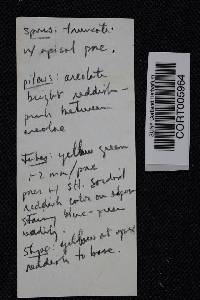 spores: truncate
w/ apical pore.
pileus: areolate
bright reddish-
pink between
areolae
Tubes: yellow green
1-2 mm/pore
pores w/ sordid
reddish color on
staining blue-green
readily.
Stipe: yellow at apex
reddish to base.
SUNY Cortland Herbarium
CORT005964